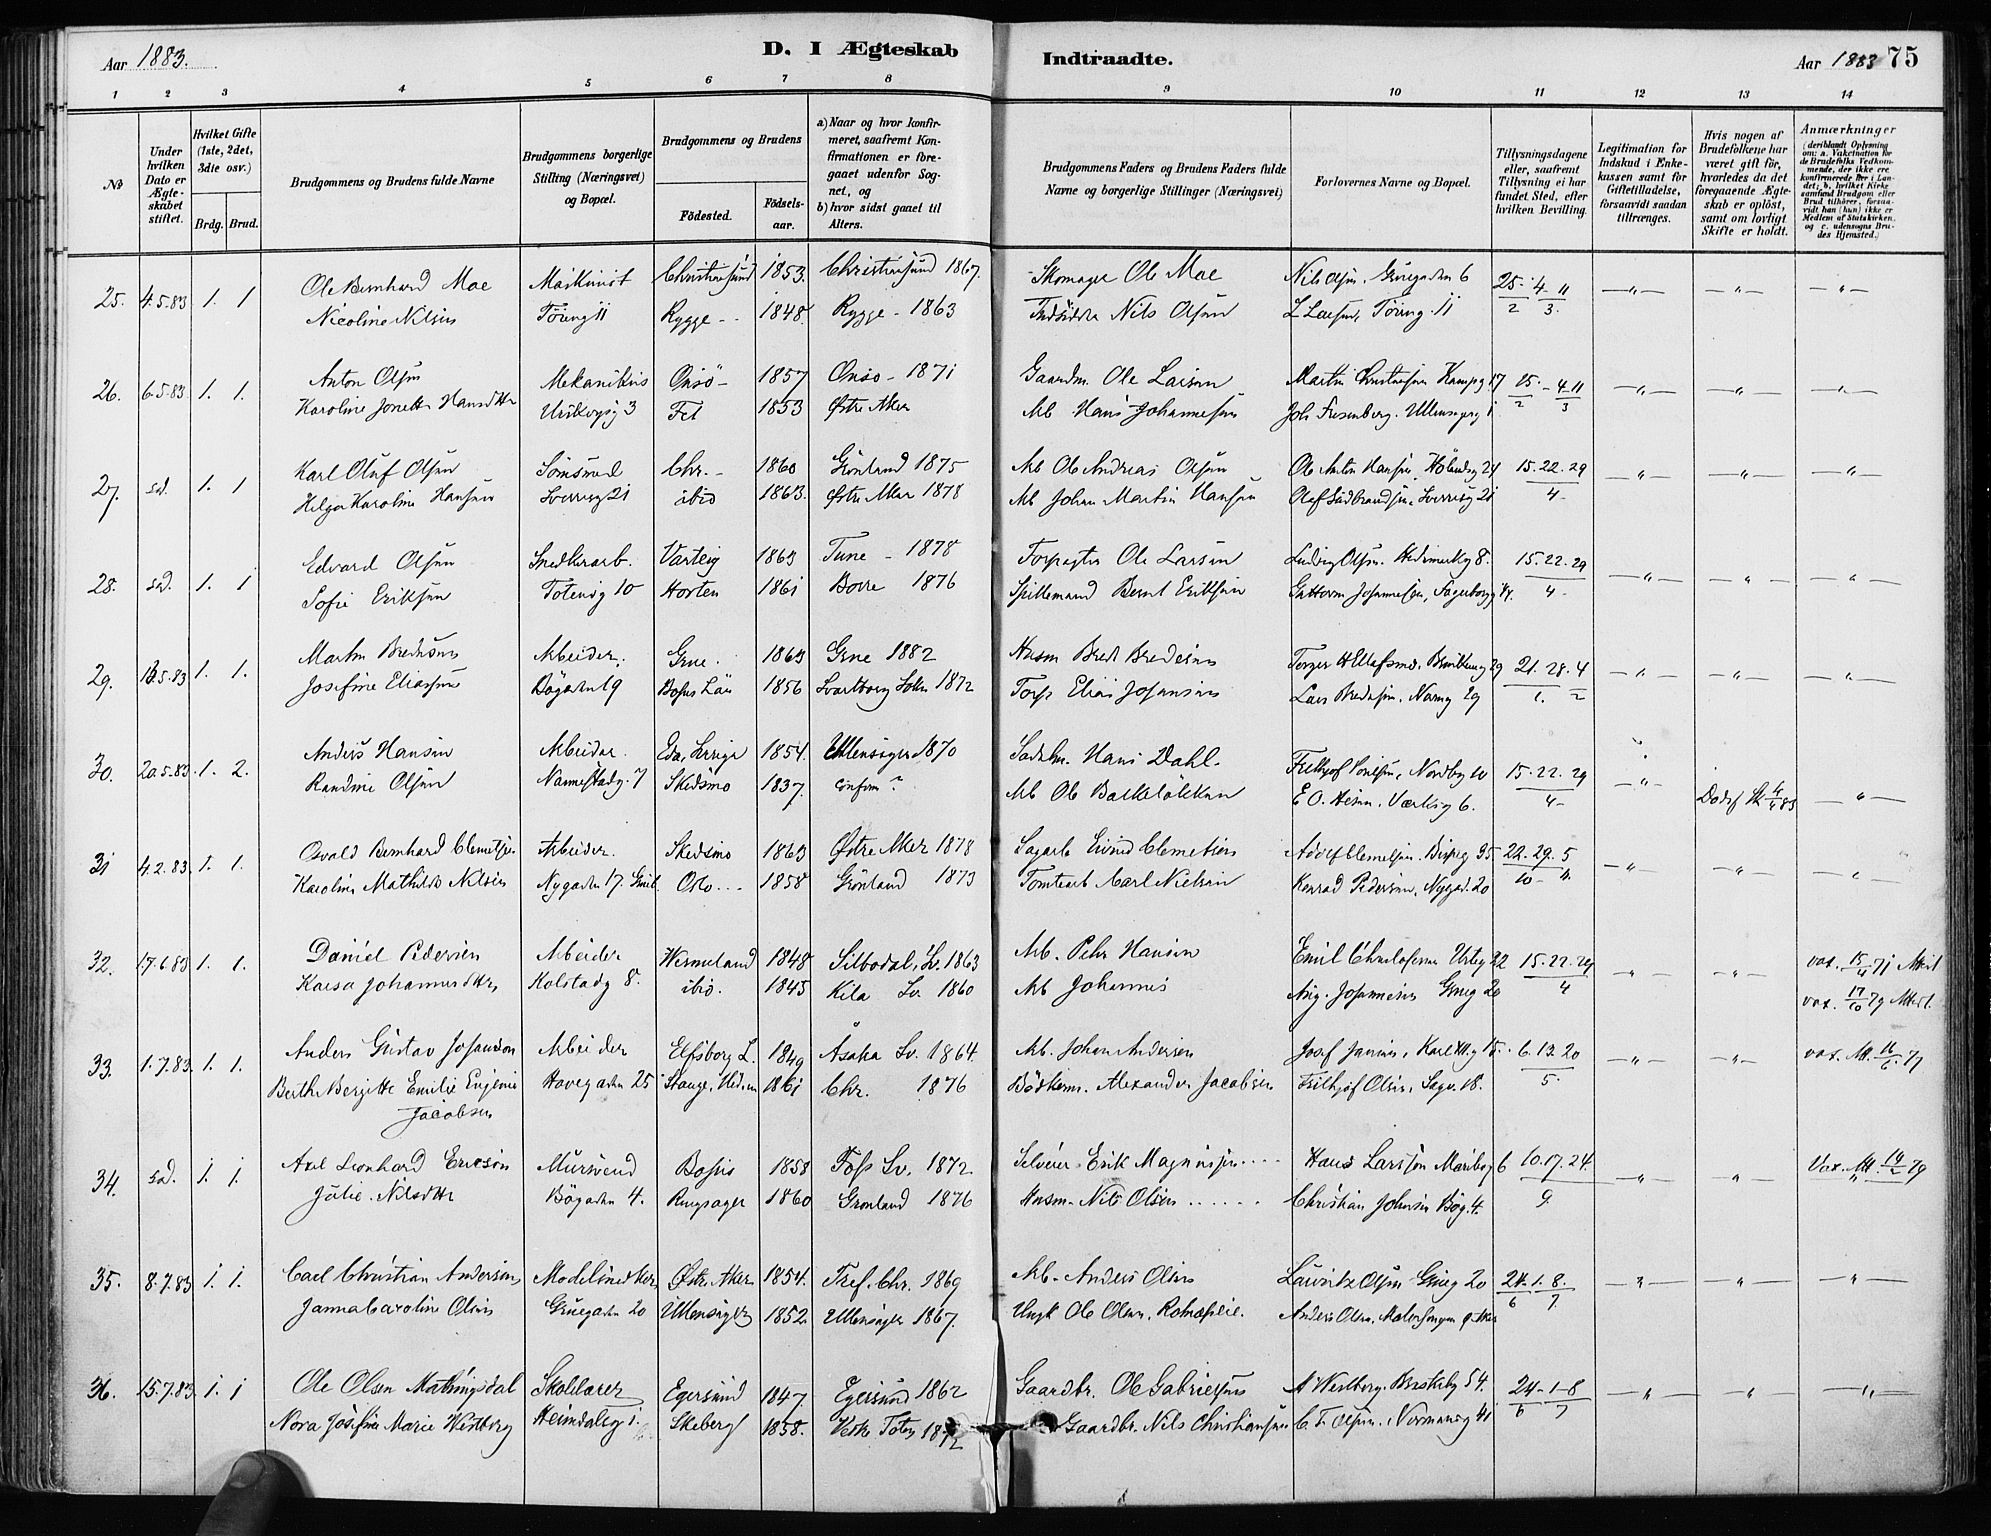 Aar 1883.
D. I Ægteskab
Indtraadte.
Aar 1883 75
1 2 3 4 5 6 7 8 9 10 11 12 13 14
No
Under hvilken Dato er Ægteskabet stiftet.
Hvilket Gifte (1ste, 2det, 3die osv.)
Brdg. Brud.
Brudgommens og Brudens fulde Navne
Brudgommens borgerlige Stilling (Næringsvei) og Bopæl.
Brudgommens og Brudens
Födested.
Födsels-aar.
a) Naar og hvor konfirmeret, saafremt Konfirmationen er foregaaet udenfor Sognet, og
b) hvor sidst gaaet til Alters.
Brudgommens Faders og Brudens Faders fulde Navne og borgerlige Stillinger (Næringsvei)
Forlovernes Navne og Bopæl.
Tillysningsdagene eller, saafremt Tillysning ei har fundet Sted, efter hvilken Bevilling.
Legitimation for Indskud i Enkekassen samt for Giftetilladelse, forsaavidt saadan tiltrænges.
Hvis nogen af Brudefolkene har været gift för, hvorledes da det foregaaende Ægteskab er oplöst, samt om lovligt Skifte er holdt.
Anmærkninger (deriblandt Oplysning om: a. Vakcination for de Brudefolks Vedkommende, der ikke ere konfirmerede her i Landet; b. hvilket Kirkesamfund Brudgom eller Brud tilhörer, forsaavidt han (hun) ikke er Medlem af Statskirken, og c. udensogns Brudes Hjemsted.)
25. 4.5.83 1. 1 Ole Bernhard Moe Maskinist Christiansund 1853. Christiansund 1867. Skomager Ole Moe Nils Olsen. Gruegaden 6 25-4-11 —"— —"— —"—
Nicoline Nilsen Töieng 11 Rygge 1848. Rygge - 1863 Nils Olsen L Larsen, Töieng. 11 2 3.
26. 6.5.83 1. 1. Anton Olsen Mekanikus Onsö - 1857 Onsö - 1871 Gaardm. Ole Larsen Martin Christensen Kampg 17 15. - 4 11 —"— —"— —"—
Karoline Jonette Hansdtr 3 Fet 1853 Østre Aker Arb Hans Johannesen Joh 2 3
27. sd. 1. 1 Karl Oluf Olsen Chr. - 1860 Grönland 1875 Arb Ole Andreas Olsen Ole Anton Hansen, 24 15. 22. 29 —"— —"— —"—
Helga Karoline Hansen Sverresg 21 ibid 1863. Østre Aker 1878 Arb Johan Martin Hansen Olaf Sverresg 21 4 -
28. sd. 1. 1 Edvard Olsen Snedkerarb. Varteig 1863 Tune - 1878 Ole Larsen Ludvig Olsen. Hedemarksg 8. 15. 22. 29 —"— —"— —"—
Sofie Eriksen Totensg 10 Horten 1861 Borre 1876 Spillemand Bernt Eriksen Guttorm Johannesen, Fagerborgg 14. 4 -
29. 5.83 1. 1. Martin Bredesen Arbeider. Grue. 1863 Grue 1882 Husm Bredesen 29 21. 28. 4 —"— —"— —"—
Josefine Eliassen Bögaden 19 Bohus Län 1856 Svarteborg Sokn 1872 Torp Elias Johansen Lars Bredesen, 29 1. 2
30. 20.5.83. 1. 2. Anders Hansen Arbeider. Eda, Sverige 1854. Ullensager 1870 Hans Dahl. Frithjof Nordbyg 10 15. 22. 29 —"— —"—
Randine Olsen Nannestadg. 7 Skedsmo 1837. confirm? Arb Ole E O. Værksg 6. 4 - Dödsf
31 4.2.83. 1. 1. Osvald Bernhard Clemetsen Arbeider. Skedsmo 1863 Østre Aker 1878 Sagarb Eivind Clemetsen Adolf Clemetsen. Bispeg 35. 22. 29. 5 —"— —"— —"—
Karoline Mathilde Nilsen Nygaden 17. Oslo 1858 Grönland 1873 Tomtearb Karl Nielsen Konrad Pedersen, Nygad. 20 10 - 11.
32. 17.6.83 1. 1. Daniel Pedersen Arbeider Wermeland 1848 Silbodal, Sv. 1863 Arb. Peter Hansen Emil Christofersen Urteg 22 15. 22. 29 —"— —"— vax. 15/4 71 Attest
Kaisa Johannesdtr, Holstadg 8. ibid. 1845 Kila Sv 1860 Arb Johannes Aug. Johannesen Grueg 20 4 vax. 17/10 79 Attest.
33. 1.7.83. 1. 1. Anders Gustav Johanson Arbeider Elfsborg L. 1849 Åsaka Sv. 1864. Arb. Johan Andersen Josef , Karl XII.g 15. 6. 13. 20 —"— —"— vax. Att.
Berthe Bergitte Emilie Eugenie Havegaden 25 Stange, Hedem 1861 Chr. 1876 Bödkerm. Alexander Jacobsen Frithjof Olsen, Sagv. 18. 5.
Jacobsen
34. sd. 1. 1. Axel Leonhard Ericson Mursvend Bohus 1858 Foss Sv. 1872. Erik Magnussen Hans Larssen Maribog 6 10. 17. 24. —"— —"— Vax. Att. 79
Julie Nilsdtr Bögaden 4. Ringsager 1860 Grönland 1876 Husm. Nils Olsen Christian Johnsen Bög. 4. 9.
35. 8.7.83 1. 1. Carl Christian Andersen Modelsnedker, Østre Aker 1854. Tref. Chr. 1869 Arb. Anders Olsen Lauritz Olsen Grueg 20 24. 1. 8. —"— —"— —"—
Janna Caroline Olsen Gruegaden 20 Ullensager 1852. Ullensager 1867. Ungk Ole Olsen, Anders Olsen, 6 7.
36. 15.7.83 1. 1 Ole Olsen Mathingsdal Skolelærer Egersund 1847. Egersund 1862 Gaardbr. Ole Gabrielsen A Westberg. Briskeby 54. 24-1-8 —"— —"— —"—
Nora Josefine Marie Westberg Heimdalsg 1. Skeberg 1858. Vestre Toten 1872 Gaardbr. Nils Christiansen C. F. Olsen, Normansg 41 6 7